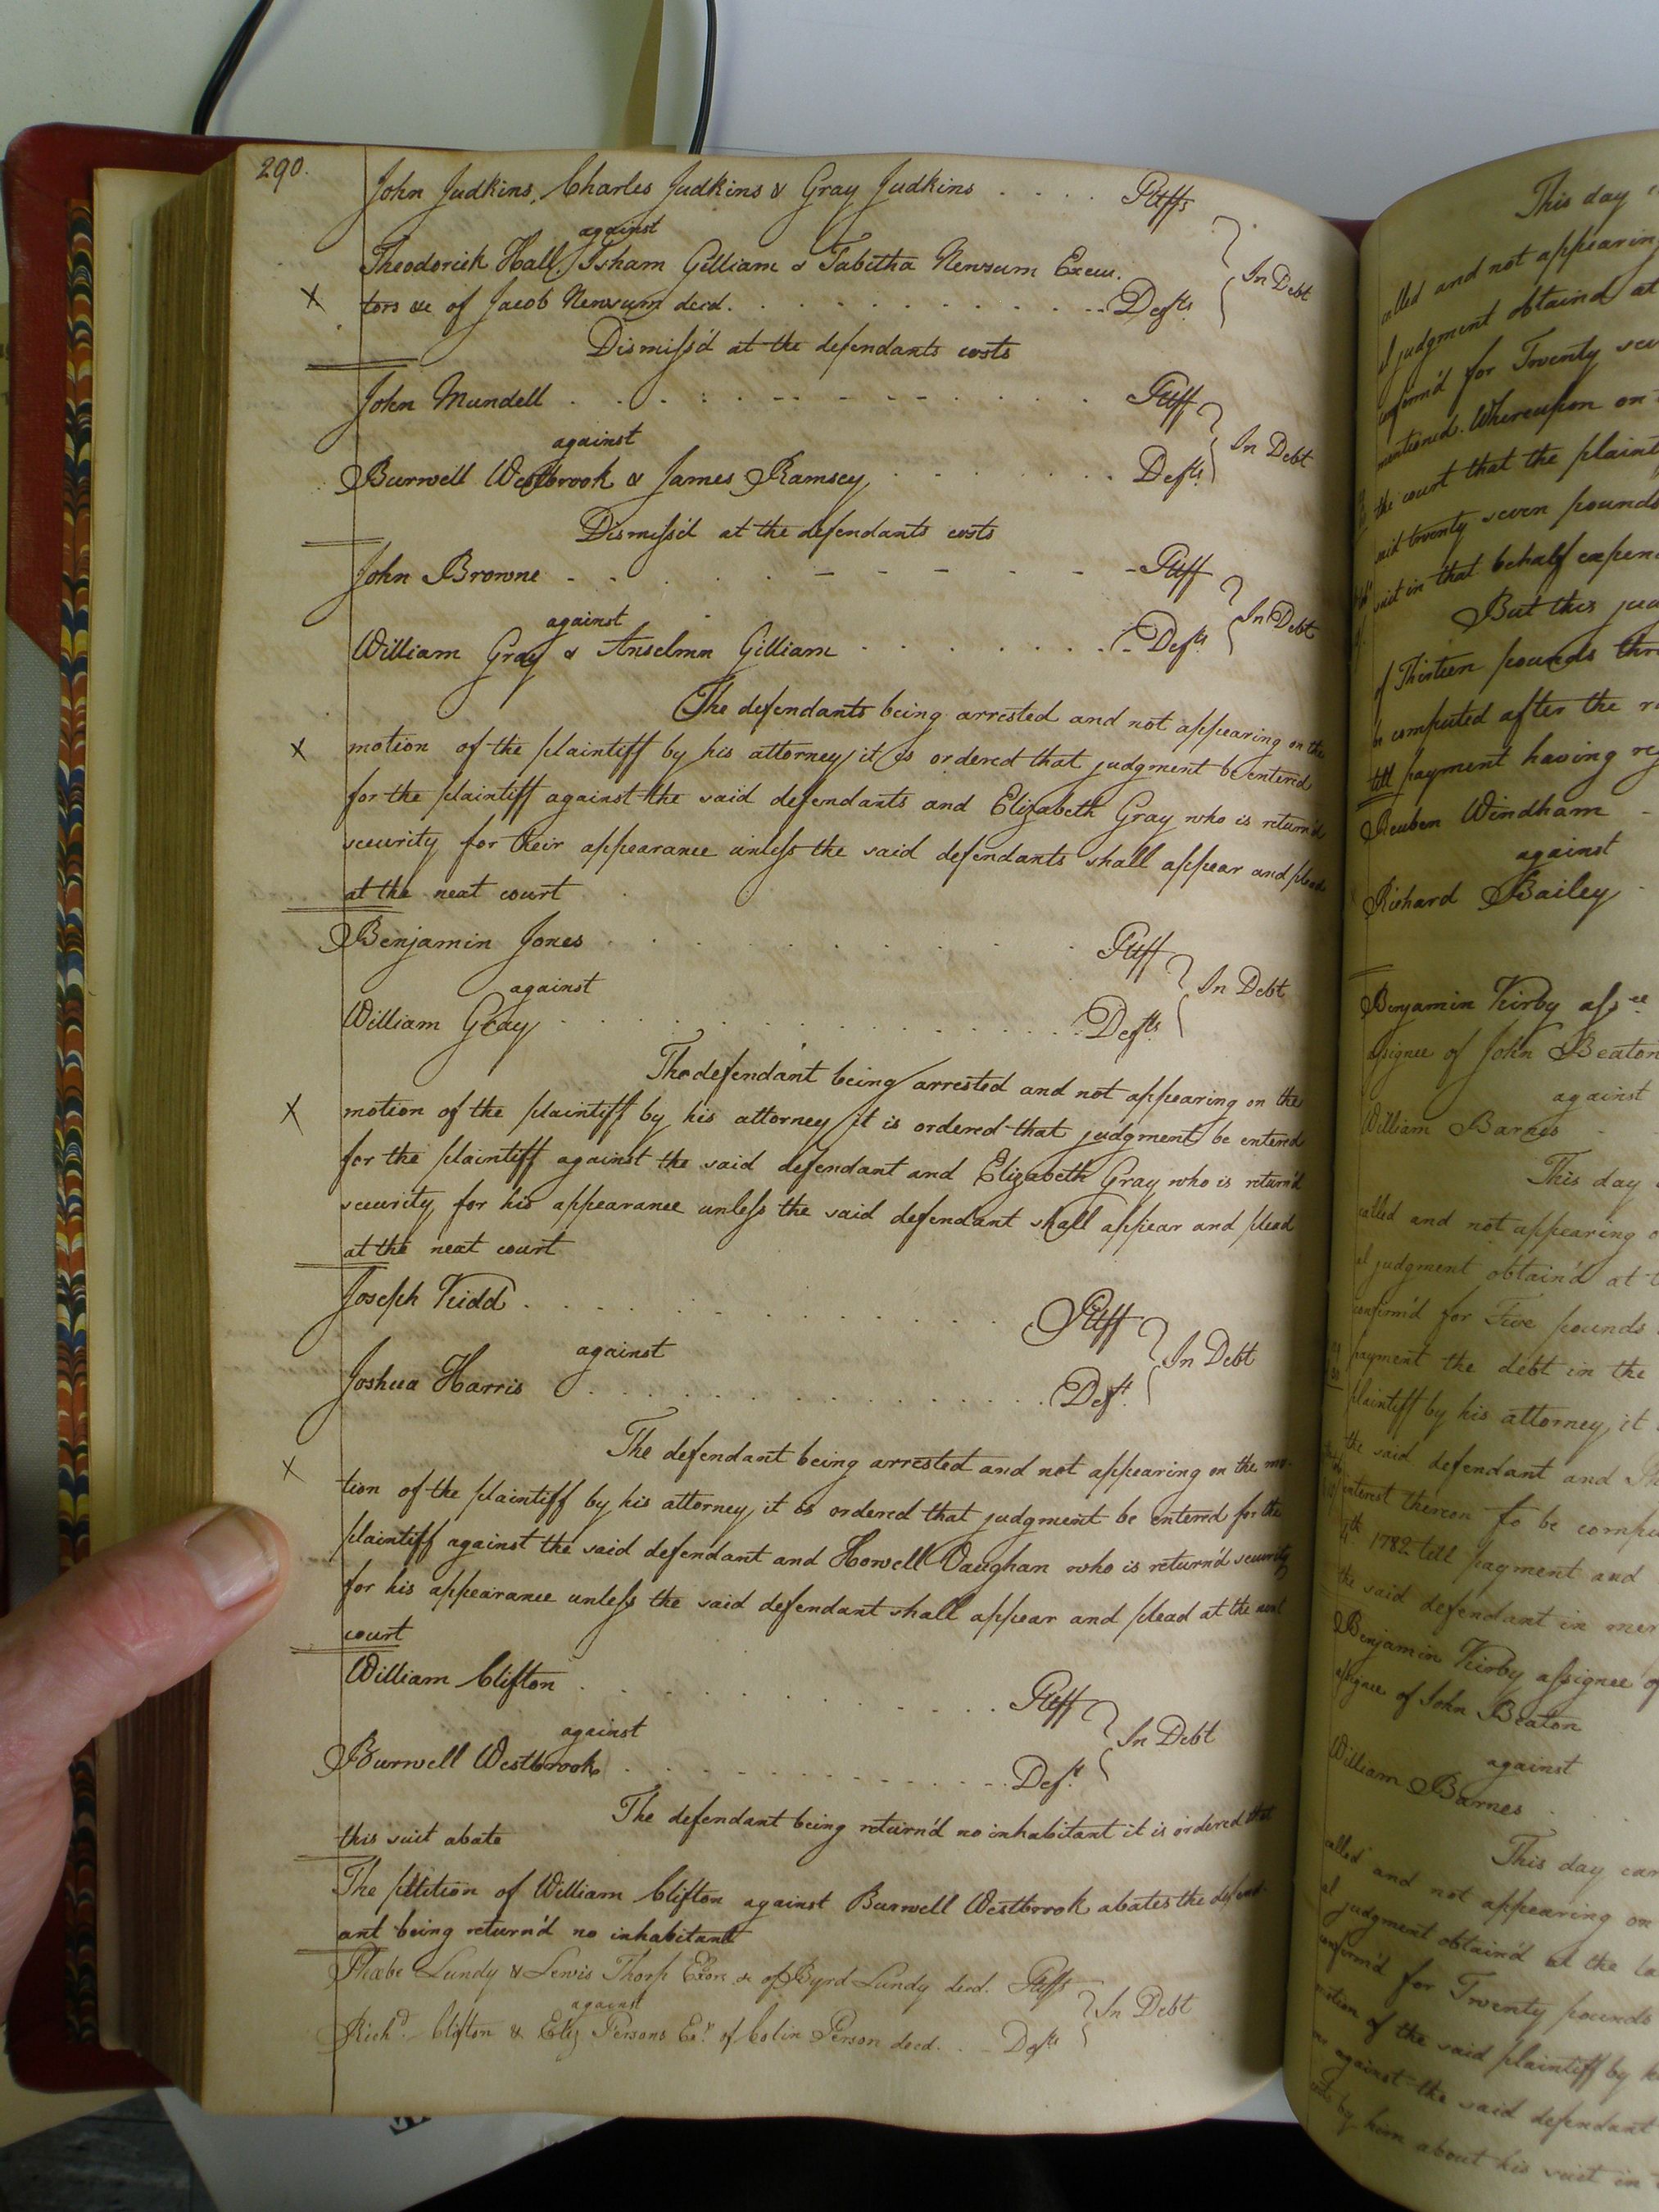 290.
John Judkins, Charles Judkins & Gray Judkins . . . . Pltffs
against
Theodorick Hall, Isham Gilliam & Tabitha Newsum Execu.
In Debt
X tors &c of Jacob Newsum decd. . . . . . . . . . . . Defts
Dismiss'd at the defendants costs
John Mundell . . . . . . . . . . . . Pltff
against
In Debt
Burwell Westbrook & James Ramsey . . . . Defts
Dismiss'd at the defendants costs
John Browne . . . . . . . . . . Pltff
against
In Debt
William Gray & Anselmn Gilliam . . . . . . . . Defts
The defendants being arrested and not appearing on the
X motion of the plaintiff by his attorney it is ordered that judgment be entered
for the plaintiff against the said defendants and Elizabeth Gray who is return'd
security for their appearance unless the said defendants shall appear and plead
at the next court
Benjamin Jones . . . . . . . . . . Pltff
against
In Debt
William Gray . . . . . . . . . . . . Defts
The defendant being arrested and not appearing on the
X motion of the plaintiff by his attorney it is ordered that judgment be entered
for the plaintiff against the said defendant and Elizabeth Gray who is return'd
security for his appearance unless the said defendant shall appear and plead
at the next court
Joseph Kidd . . . . . . . . . . . Pltff
against
In Debt
Joshua Harris . . . . . . . . . . . . Deft.
The defendant being arrested and not appearing on the mo-
X tion of the plaintiff by his attorney it is ordered that judgment be entered for the
plaintiff against the said defendant and Howell Vaughan who is return'd security
for his appearance unless the said defendant shall appear and plead at the next
court
William Clifton . . . . . . . . . . Pltff
against
In Debt
Burwell Westbrook . . . . . . . . . . Deft.
The defendant being return'd no inhabitant it is ordered that
this suit abate
The petition of William Clifton against Burwell Westbrook abates the defend-
ant being return'd no inhabitant
Phœbe Lundy & Lewis Thorp Exors &c of Byrd Lundy decd. Pltffs
against
In Debt
Richd. Clifton & Eliz Persons Exr. of Colin Person decd. . . Defts
This day
called and not appearing
al judgment obtaind at
confirm'd for Twenty sev
mentioned. Whereupon on
the court that the plaint
said twenty seven pounds
suit in that behalf expen
But this jud
of Thirteen pounds thr
be computed after the r
till payment having re
Reuben Windham
against
Richard Bailey
Benjamin Kirby assee
assignee of John Beaton
against
William Barnes
This day
called and not appearing o
al judgment obtain'd at t
confirm'd for Five pounds
payment the debt in the
plaintiff by his attorney, it
the said defendant and Th
interest thereon to be compu
4th 1782 till payment and
the said defendant in mer
Benjamin Kirby assignee of
assignee of John Beaton
against
William Barnes
This day cam
called and not appearing on
al judgment obtain'd at the la
confirm'd for Twenty pounds
motion of the said plaintiff by h
against the said defendant
by him about his suit in